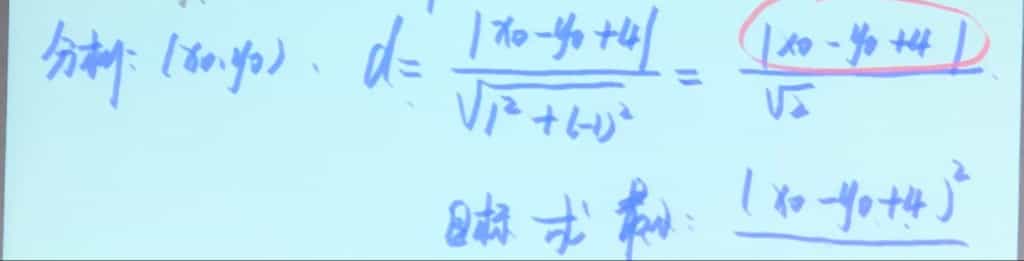 分析: (x₀, y₀)、 d = |x₀ - y₀ + 4| / √(1² + (-1)²) = |x₀ - y₀ + 4| / √2
目标式最小: (x₀ - y₀ + 4)²